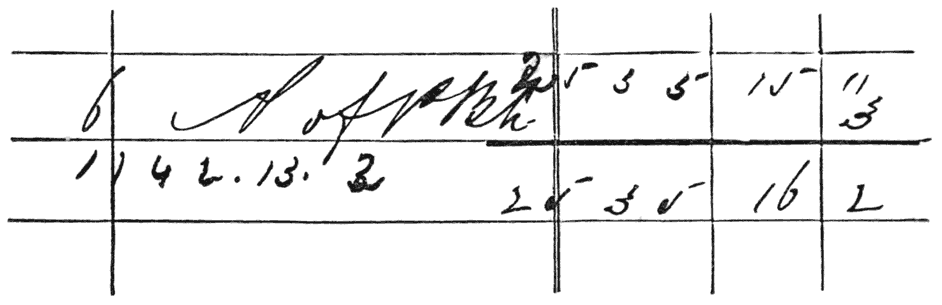 6 A of P Bk 2535 15 11
3
11 4 2. 13. 3
2535 16 2